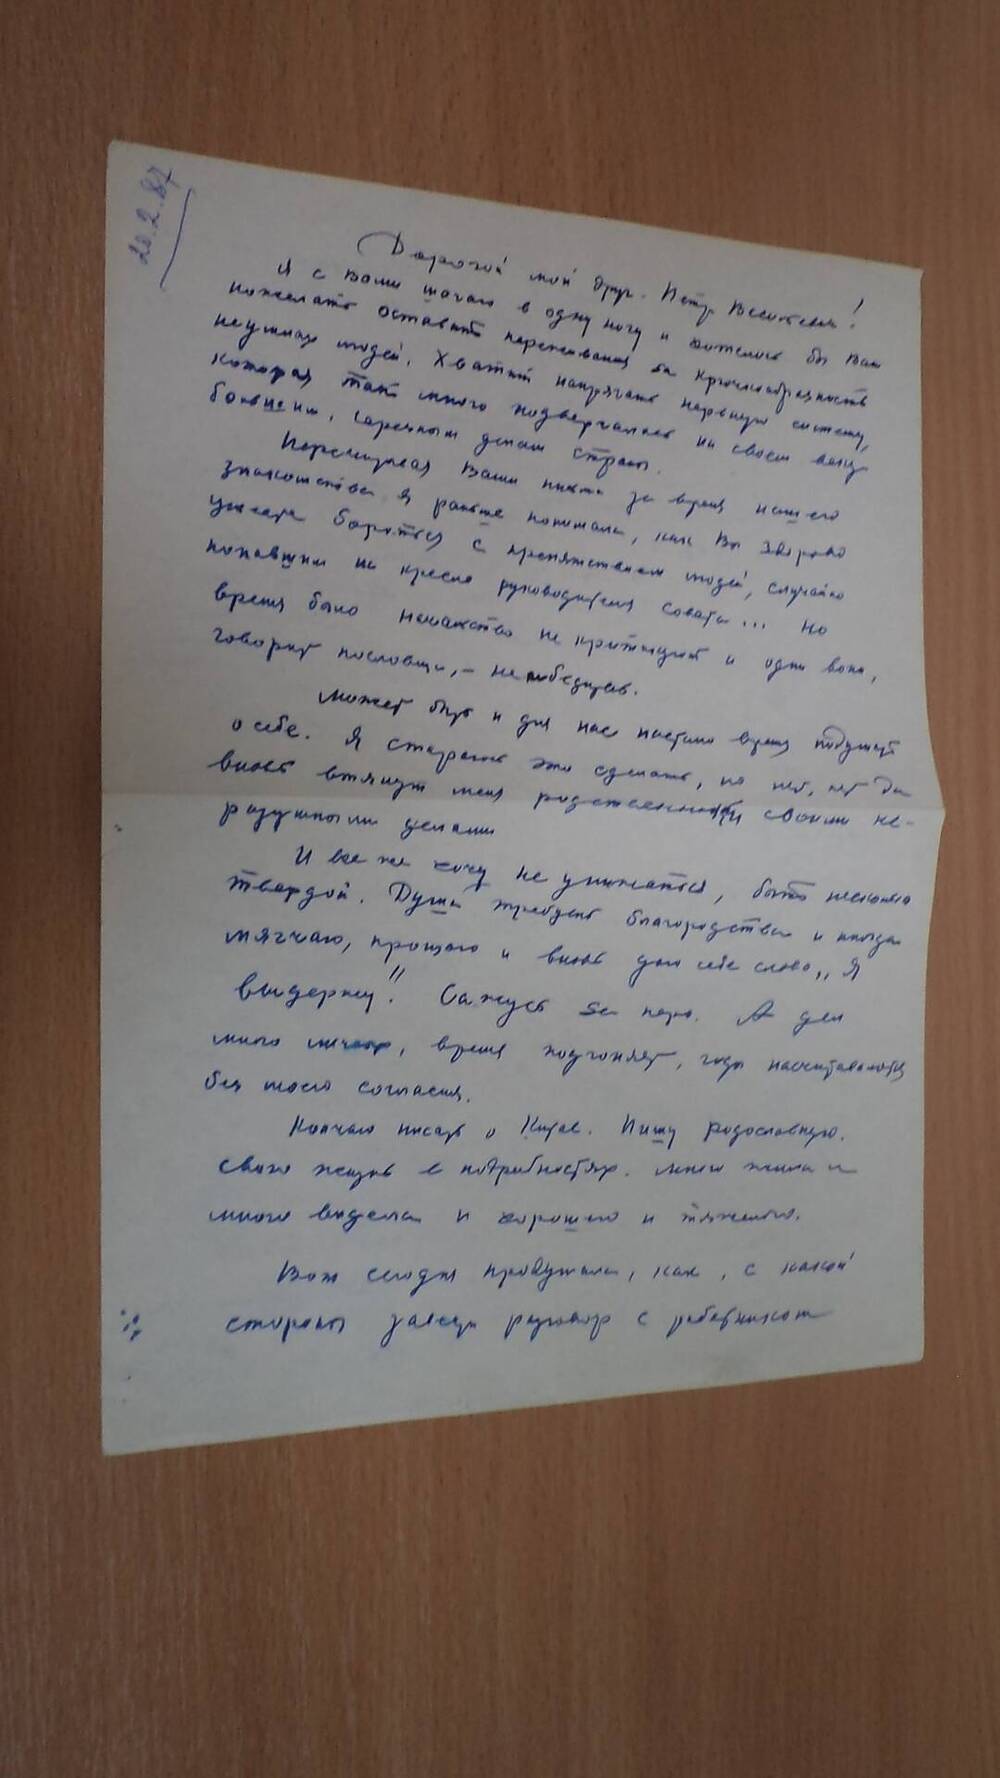 20.2.87
Дорогой мой друг. Петр Васильевич!
Я с Вами шагаю в одну ногу и хотелось бы Вам
пожелать оставить переживания за крючкообразность
неумных людей. Хватит напрягать нервную систему,
которая так много подвергалась на своем веку
большим, серечным делам страны.
Перечитывая Ваши письма за время нашего
знакомства я раньше понимала, как Вы здорово
умеете бороться с препятствием людей, случайно
попавшим на кресло руководителя совета... Но
время было не критикуют и один воин,
говорит пословица, – не победитель.
Может быть и для нас настало время подумать
о себе. Я стараюсь это сделать, но нет, нет да
вновь втянут меня родственники своими не-
радушными делами
И все же хочу не унижаться, быть несколько
твердой. Душа требует благородства и иногда
мягчаю, прощаю и вновь даю себе слово „Я
выдержу"! Сажусь за перо. А дел
много личных, время подгоняет, годы насчитываются
без моего согласия.
Кончаю писать о Китае. Пишу родословную.
Свою жизнь в подробностях. Много жила и
много видела и хорошего и тяжелого.
Вот сегодня продумала, как, с какой
стороны завести разговор с работником